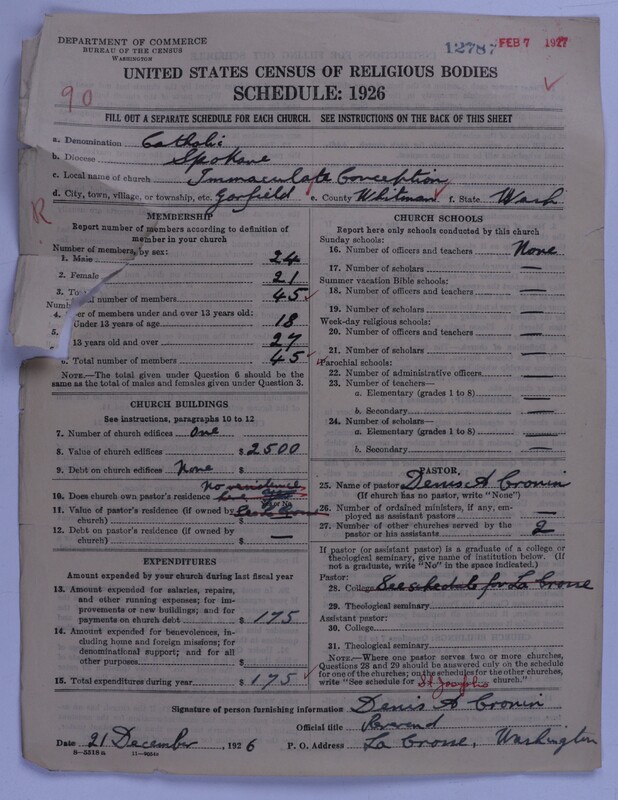 DEPARTMENT OF COMMERCE
BUREAU OF THE CENSUS
WASHINGTON
12787 FEB 7 1927
UNITED STATES CENSUS OF RELIGIOUS BODIES
SCHEDULE: 1926
90
FILL OUT A SEPARATE SCHEDULE FOR EACH CHURCH. SEE INSTRUCTIONS ON THE BACK OF THIS SHEET
a. Denomination Catholic
b. Diocese Spokane
c. Local name of church Immaculate Conception
d. City, town, village, or township, etc. Garfield e. County Whitman f. State Wash
R
MEMBERSHIP
Report number of members according to definition of
member in your church
Number of members, by sex:
1. Male 24
2. Female 21
3. Total number of members 45
Number of members under and over 13 years old:
4. Under 13 years of age 18
5. 13 years old and over 27
6. Total number of members 45
NOTE.—The total given under Question 6 should be
the same as the total of males and females given under Question 3.
CHURCH BUILDINGS
See instructions, paragraphs 10 to 12
7. Number of church edifices one
8. Value of church edifices $ 2500
9. Debt on church edifices None $
no residence
10. Does church own pastor's residence here
11. Value of pastor's residence (if owned by
church) $
12. Debt on pastor's residence (if owned by
church) $ —
EXPENDITURES
Amount expended by your church during last fiscal year
13. Amount expended for salaries, repairs,
and other running expenses; for im-
provements or new buildings; and for
payments on church debt $ 175
14. Amount expended for benevolences, in-
cluding home and foreign missions; for
denominational support; and for all
other purposes $
15. Total expenditures during year $ 175
CHURCH SCHOOLS
Report here only schools conducted by this church
Sunday schools:
16. Number of officers and teachers None
17. Number of scholars —
Summer vacation Bible schools:
18. Number of officers and teachers —
19. Number of scholars —
Week-day religious schools:
20. Number of officers and teachers —
21. Number of scholars —
Parochial schools:
22. Number of administrative officers —
23. Number of teachers—
a. Elementary (grades 1 to 8) —
b. Secondary —
24. Number of scholars—
a. Elementary (grades 1 to 8) —
b. Secondary —
PASTOR
25. Name of pastor Denis A Cronin
(If church has no pastor, write "None")
26. Number of ordained ministers, if any, em-
ployed as assistant pastors —
27. Number of other churches served by the
pastor or his assistants 2
If pastor (or assistant pastor) is a graduate of a college or
theological seminary, give name of institution below. (If
not a graduate, write "No" in the space indicated.)
Pastor:
28. College See schedule for La Crosse
29. Theological seminary
Assistant pastor:
30. College
31. Theological seminary
NOTE.—Where one pastor serves two or more churches,
Questions 28 and 29 should be answered only on the schedule
for one of the churches; on the schedules for the other churches,
write "See schedule for St Josephs church."
Signature of person furnishing information Denis A Cronin
Official title Reverend
Date 21 December, 1926 P. O. Address La Crosse, Washington
8—5518a